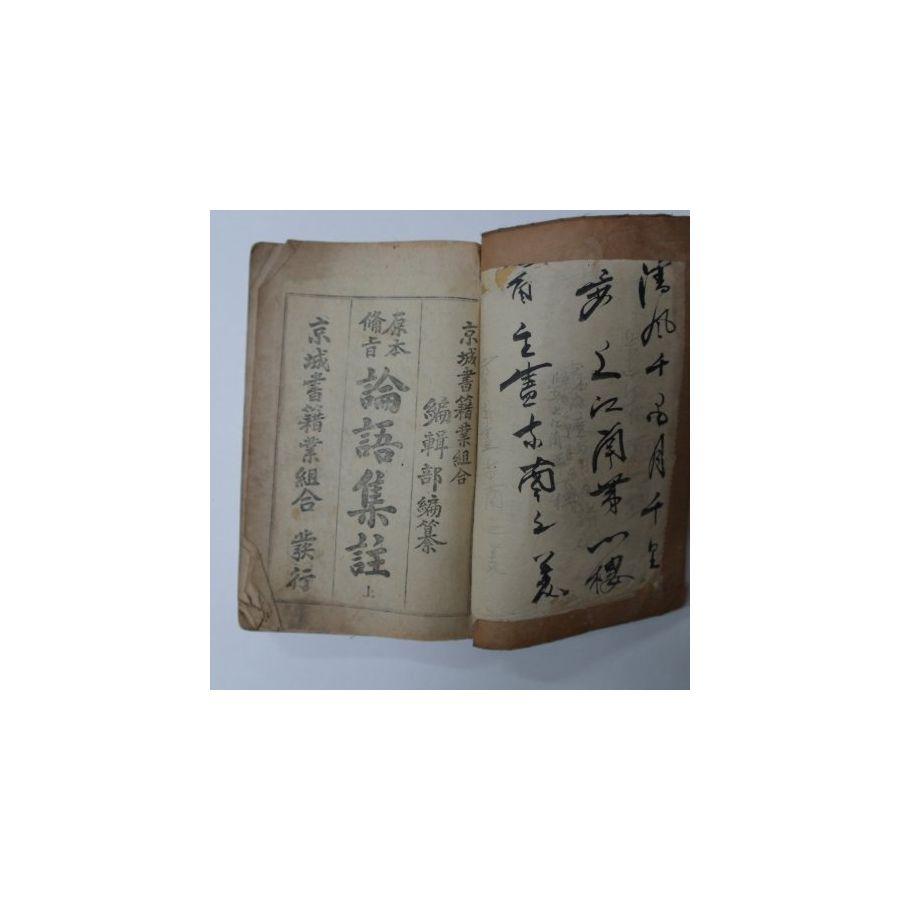 清風千
月千里
江南第一樓
主盡東南之美
京城書籍業組合
編輯部編纂
原本
備旨
論語集註
上
京城書籍業組合 發行